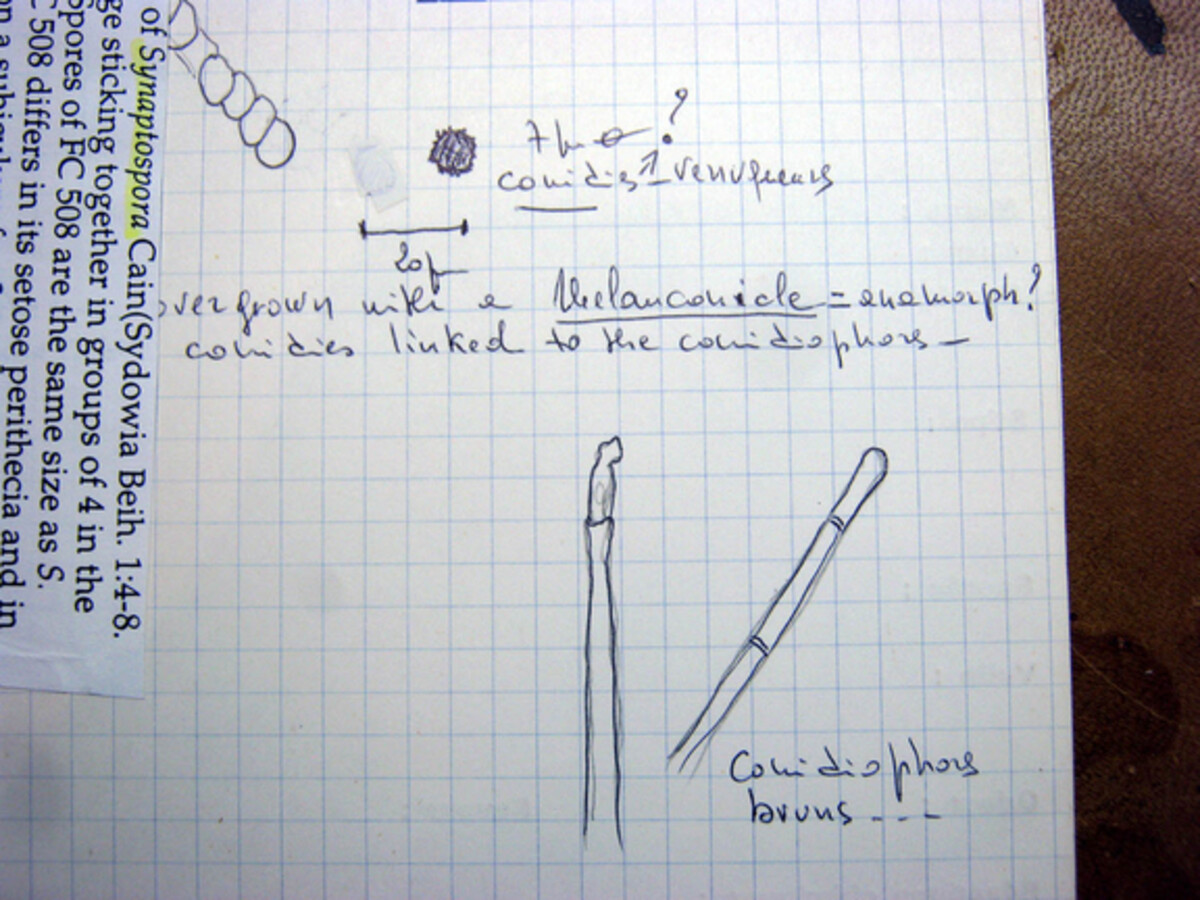 of Synaptospora Cain(Sydowia Beih. 1:4-8.
ge sticking together in groups of 4 in the
spores of FC 508 are the same size as S.
C 508 differs in its setose perithecia and in
?
7µ
conidies verruqueuses
20µ
overgrown with a = anamorph?
conidies linked to the conidiophors –
Conidiophors
bruns - - -